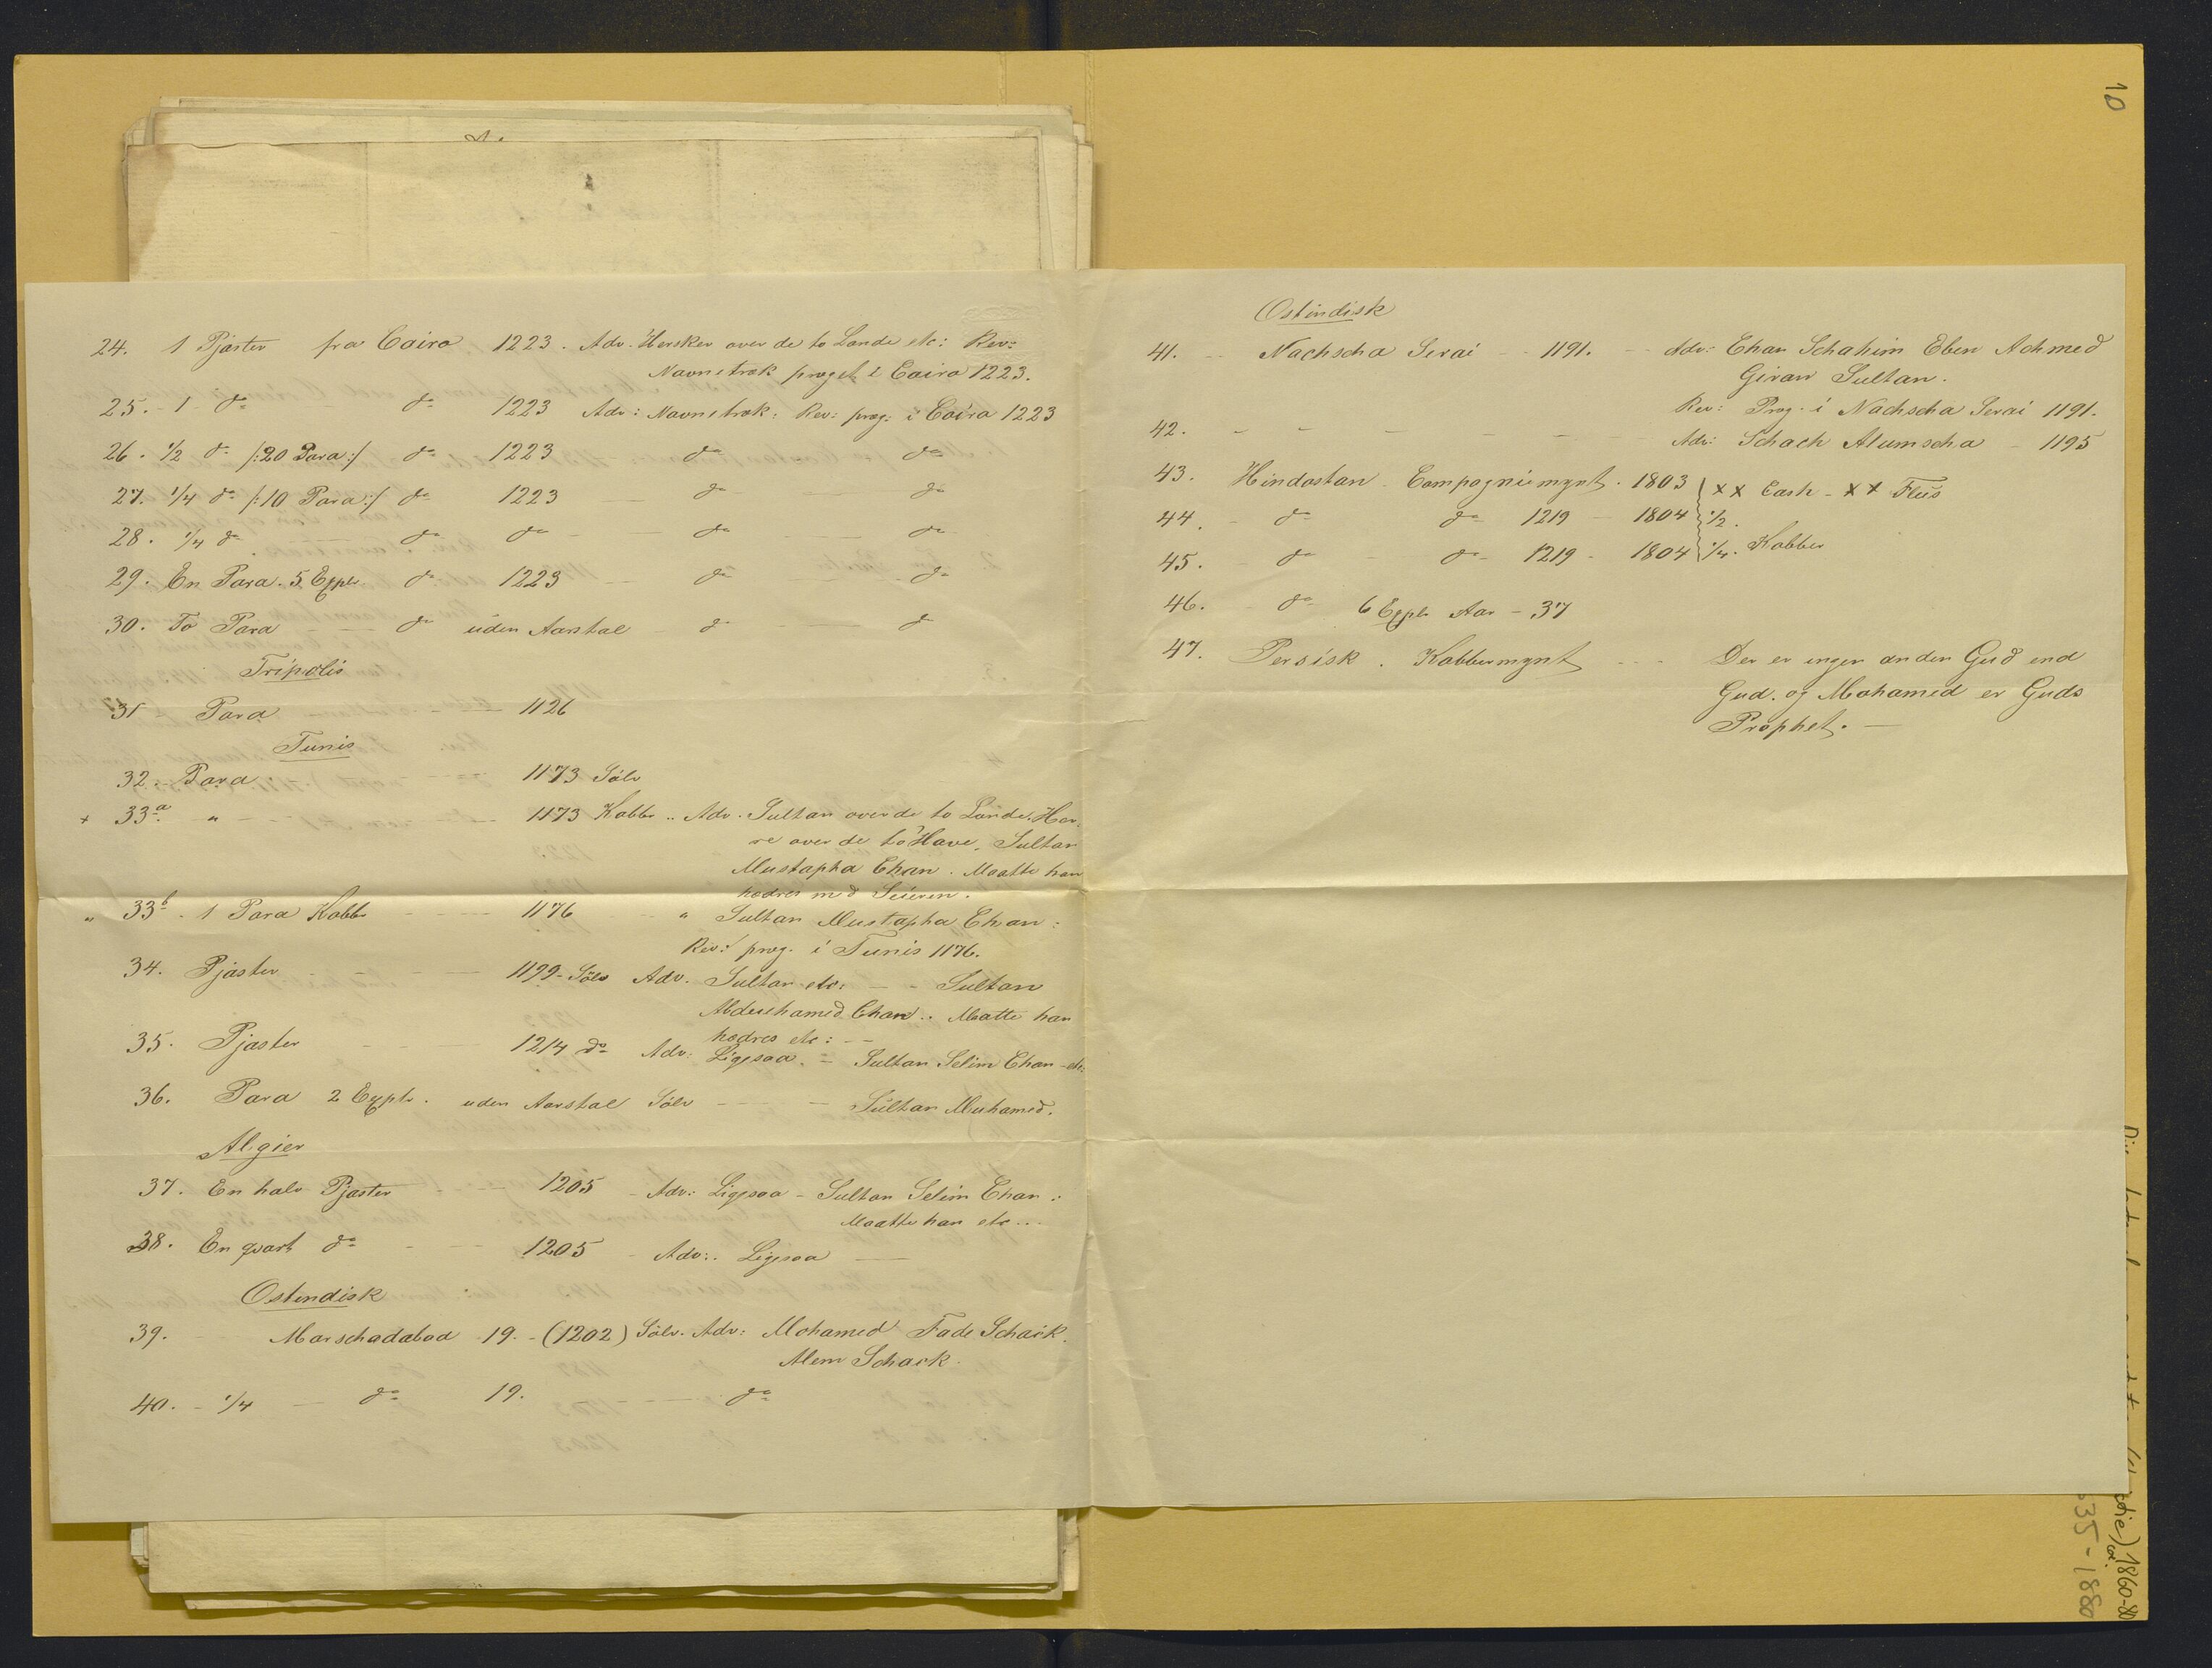 24. 1 Pjaster fra Cairo 1223. Adv. Hersker over de to Lande etc: Rev:
Navnetræk præget i Cairo 1223.
25. - 1 - do - do 1223 Adv: Navnetræk: Rev: præg: i Cairo 1223
26. 1/2 do /:20 Para:/ do 1223 do do
27. 1/4 do /:10 Para:/ do 1223 - do - do
28. 1/4 do do do - do - do
29. En Para. 5 Expl. do 1223 - do - do
30. To Para - do uden Aarstal - do - do
Tripolis
31 Para - - 1126
Tunis
32. Para. - - 1173 Sölv
+ 33a. " - - 1173 Kobb. " Adv. Sultan over de to Lande. Her-
re over de to Have, Sultan
Mustapha Chan. Maatte han
hædres med Seieren.
" 33b. 1 Para Kobb. - - 1176 - " Sultan Mustapha Chan:
Rev: præg. i Tunis 1176.
34. Pjaster - - - 1199 - Sölv Adv. Sultan etc: - - Sultan
Abdulhamed Chan.. Maatte han
hædres etc: - -
35. Pjaster - - 1214 do Adv: Ligesaa. - Sultan Selim Chan - etc:
36. Para 2 Explr. uden Aarstal Sölv - - Sultan Muhamed.
Algier
37. En halv Pjaster - - 1205 - Adv: Ligesaa - Sultan Selim Chan:
Maatte han etc...
38. En qvart do - - 1205 - Adv:. Ligesaa -
Ostindisk
39. - Marschadabad 19. - (1202) Sölv. Adv: Mohamed Fade Schack.
Alem Schack.
40. - 1/4 - do 19. - - do
10
Ostindisk
41. - - Nachscha Serai - - 1191. - - Adv: Chan Schahim Eben Achmed
Giran Sultan.
Rev: Præg. i Nachscha Serai 1191.
42. - - - - - - Adv: Schach Alumscha - 1195
43. Hindostan - Compagniemynt. 1803 xx Cash - xx Flus
44. - do do 1219 - 1804 1/2.
45. - do - do - 1219 - 1804 1/4. Kobber
46. - do 6 Expl. Aar - 37
47. Persisk. Kobbermynt - - - Der er ingen anden Gud end
Gud. og Mohamed er Guds
Prophet. -
1860-80
35-1880